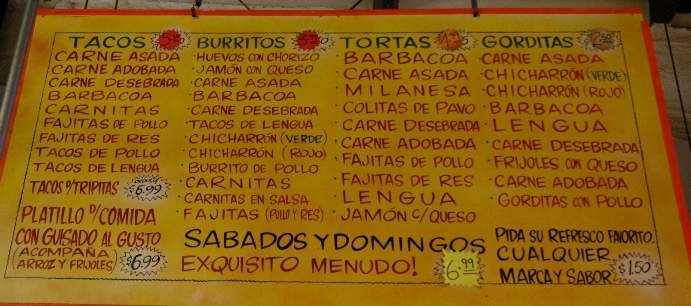 TACOS
CARNE ASADA
CARNE ADOBADA
CARNE DESEBRADA
BARBACOA
CARNITAS
FAJITAS DE POLLO
FAJITAS DE RES
TACOS DE POLLO
TACOS DE LENGUA
TACOS D/TRIPITAS $6.99
PLATILLO D/COMIDA
CON GUISADO AL GUSTO
(ACOMPAÑA
ARROZ Y FRIJOLES) $6.99
BURRITOS
·HUEVOS CON CHORIZO
·JAMÓN CON QUESO
·CARNE ASADA
·BARBACOA
·CARNE DESEBRADA
·TACOS DE LENGUA
·CHICHARRÓN (VERDE)
·CHICHARRÓN (ROJO)
·BURRITO DE POLLO
·CARNITAS
·CARNITAS EN SALSA
·FAJITAS (POLLO Y RES)
TORTAS
·BARBACOA
·CARNE ASADA
·MILANESA
·COLITAS DE PAVO
·CARNE DESEBRADA
·CARNE ADOBADA
·FAJITAS DE POLLO
·FAJITAS DE RES
·LENGUA
·JAMÓN C/QUESO
GORDITAS
·CARNE ASADA
·CHICHARRÓN (VERDE)
·CHICHARRÓN (ROJO)
·BARBACOA
·LENGUA
·CARNE DESEBRADA
·FRIJOLES CON QUESO
·CARNE ADOBADA
·GORDITAS CON POLLO
SABADOS Y DOMINGOS
EXQUISITO MENUDO! $6.99
PIDA SU REFRESCO FAVORITO
CUALQUIER
MARCA Y SABOR $1.50